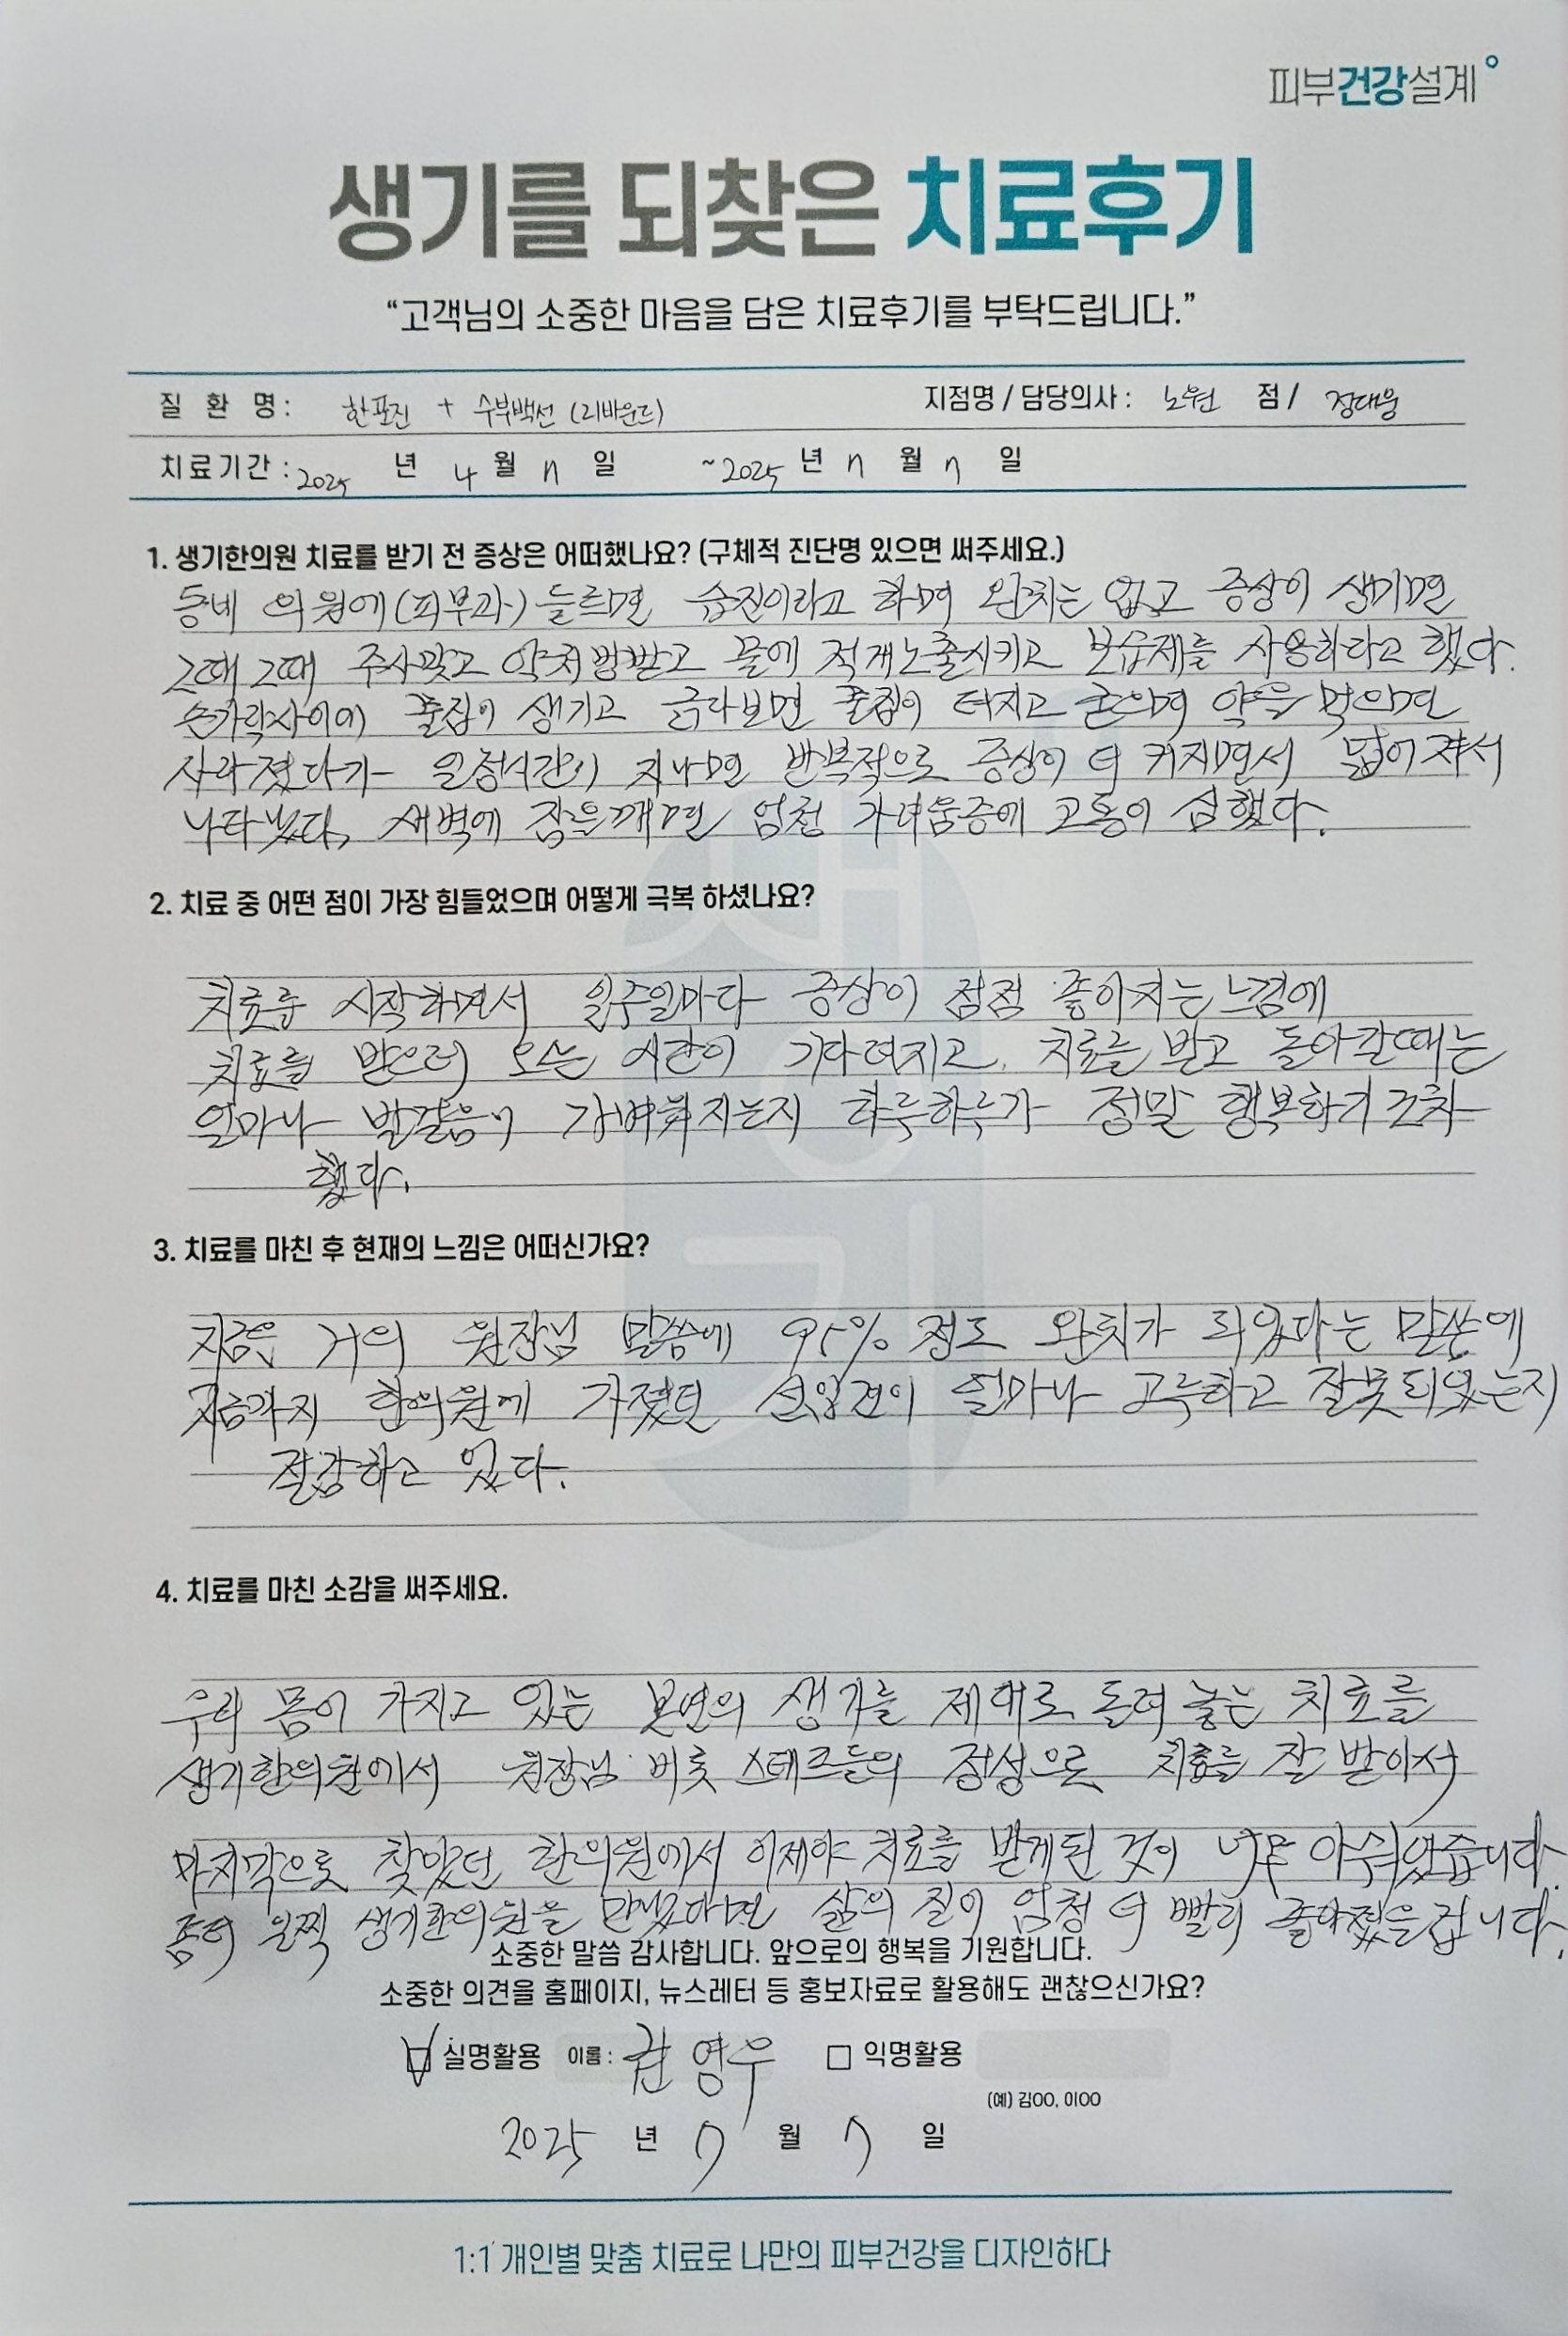 피부건강설계
생기를 되찾은 치료후기
“고객님의 소중한 마음을 담은 치료후기를 부탁드립니다.”
질 환 명 : 한포진 + 수부백선 (리바운드) 지점명 / 담당의사 : 노원 점 / 정대웅
치료기간 : 2025 년 4 월 7 일 ~2025 년 7 월 7 일
1. 생기한의원 치료를 받기 전 증상은 어떠했나요? (구체적 진단명 있으면 써주세요.)
동네 의원에(피부과) 들르면 습진이라고 하며 완치는 없고 증상이 생기면
그때 그때 주사맞고 약처방받고 물에 적게노출시키고 보습제를 사용하라고 했다.
손가락사이에 물집이 생기고 긁다보면 물집이 터지고 약을 먹으면
사라졌다가 일정시간이 지나면 반복적으로 증상이 더 커지면서 넓어져서
나타났다, 새벽에 잠을깨면 엄청 가려움증에 고통이 심했다.
2. 치료 중 어떤 점이 가장 힘들었으며 어떻게 극복 하셨나요?
치료를 시작하면서 일주일마다 증상이 점점 좋아지는 느낌에
치료를 받으러 오는 시간이 기다려지고, 치료를 받고 돌아갈때는
얼마나 발걸음이 가벼워지는지 하루하루가 정말 행복하기 조차
했다.
3. 치료를 마친 후 현재의 느낌은 어떠신가요?
지금은 거의 원장님 말씀에 95% 정도 완치가 되었다는 말씀에
지금까지 한의원에 가졌던 선입견이 얼마나 고루하고 잘못되었는지
절감하고 있다.
4. 치료를 마친 소감을 써주세요.
우리 몸이 가지고 있는 본연의 생기를 제대로 돌려 놓는 치료를
생기한의원에서 원장님 비롯 스테프들의 정성으로 치료를 잘 받아서
마지막으로 찾았던 한의원에서 이제야 치료를 받게된 것이 너무 아쉬웠습니다.
좀더 일찍 생기한의원을 만났다면 삶의 질이 엄청 더 빨리 좋아졌을겁니다.
소중한 말씀 감사합니다. 앞으로의 행복을 기원합니다.
소중한 의견을 홈페이지, 뉴스레터 등 홍보자료로 활용해도 괜찮으신가요?
실명활용 이름 : 권영우 익명활용
(예) 김OO, 이OO
2025 년 7 월 7 일
1:1 개인별 맞춤 치료로 나만의 피부건강을 디자인하다